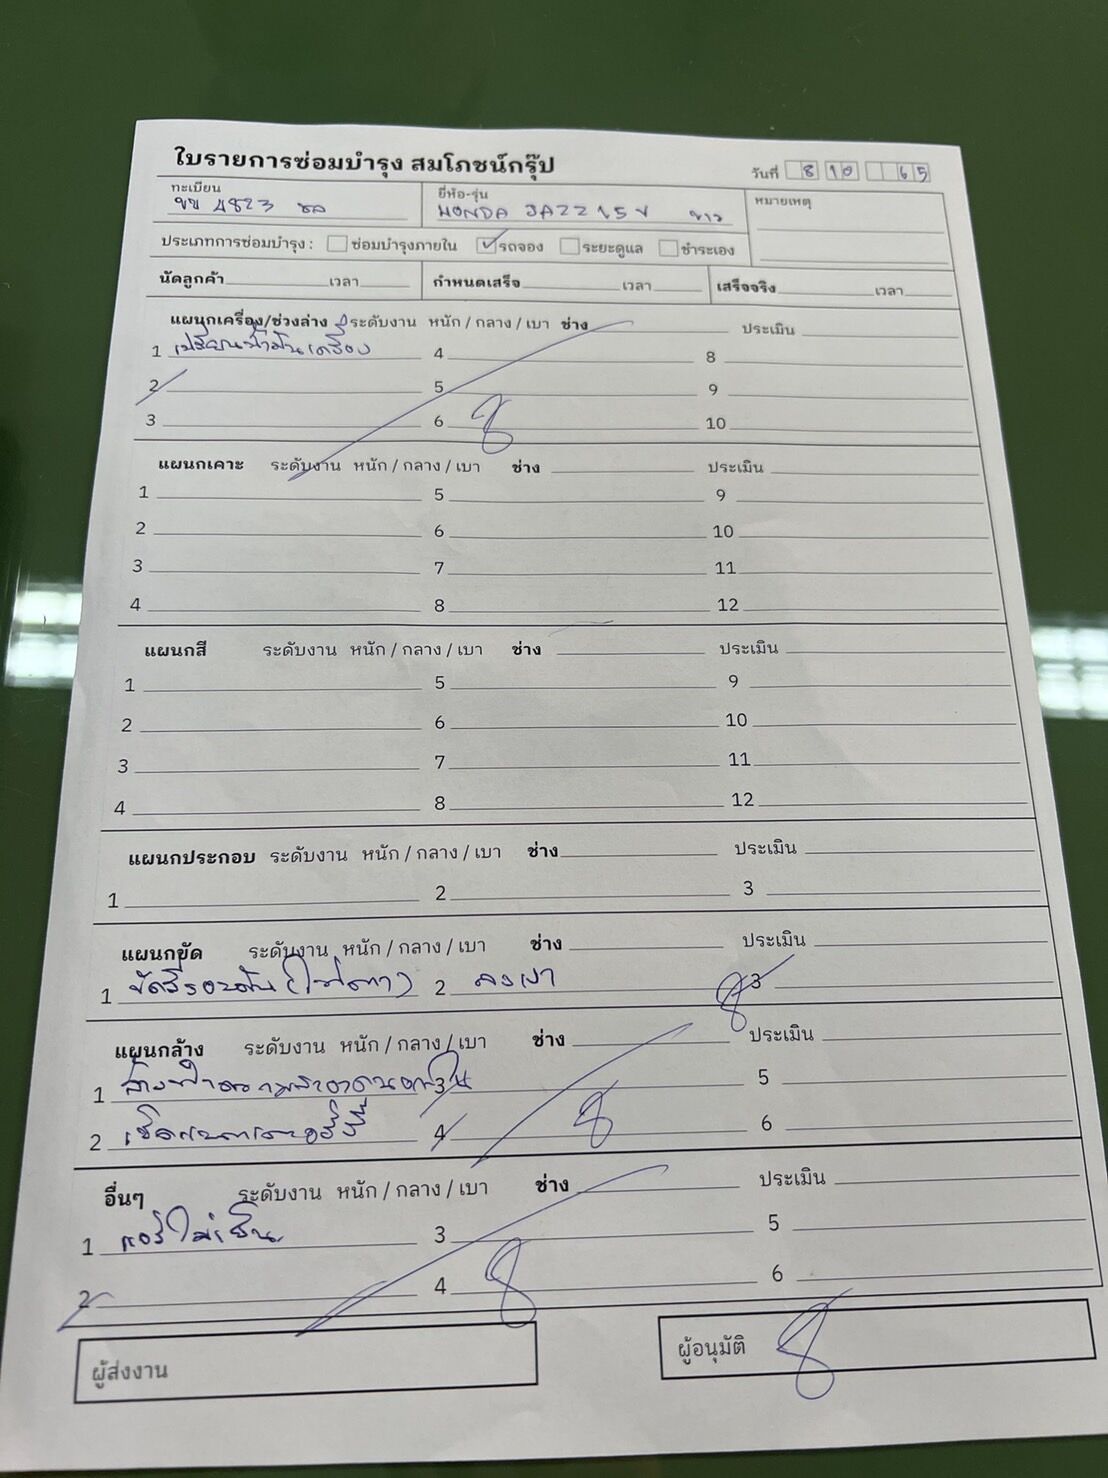 ใบรายการซ่อมบำรุง สมโภชน์กรุ๊ป
วันที่ 8 10 65
ทะเบียน ยี่ห้อ-รุ่น หมายเหตุ
ขข 4823 ชล HONDA JAZZ 1.5 V ขาว
ประเภทการซ่อมบำรุง : ซ่อมบำรุงภายใน ✓ รถจอง ระยะดูแล ชำระเอง
นัดลูกค้า เวลา กำหนดเสร็จ เวลา เสร็จจริง เวลา
แผนกเครื่อง/ช่วงล่าง ระดับงาน หนัก / กลาง / เบา ช่าง ประเมิน
1 เปลี่ยนน้ำมันเครื่อง 4 8
2 5 9
3 6 10
แผนกเคาะ ระดับงาน หนัก / กลาง / เบา ช่าง ประเมิน
1 5 9
2 6 10
3 7 11
4 8 12
แผนกสี ระดับงาน หนัก / กลาง / เบา ช่าง ประเมิน
1 5 9
2 6 10
3 7 11
4 8 12
แผนกประกอบ ระดับงาน หนัก / กลาง / เบา ช่าง ประเมิน
1 2 3
แผนกขัด ระดับงาน หนัก / กลาง / เบา ช่าง ประเมิน
1 ขัดสีรอบคัน 2 ลงเงา 3
แผนกล้าง ระดับงาน หนัก / กลาง / เบา ช่าง ประเมิน
1 ล้างทำความสะอาดนอกใน 3 5
2 เช็คแบตเตอรี่ 4 6
อื่นๆ ระดับงาน หนัก / กลาง / เบา ช่าง ประเมิน
1 แอร์ไม่เย็น 3 5
2 4 6
ผู้ส่งงาน ผู้อนุมัติ